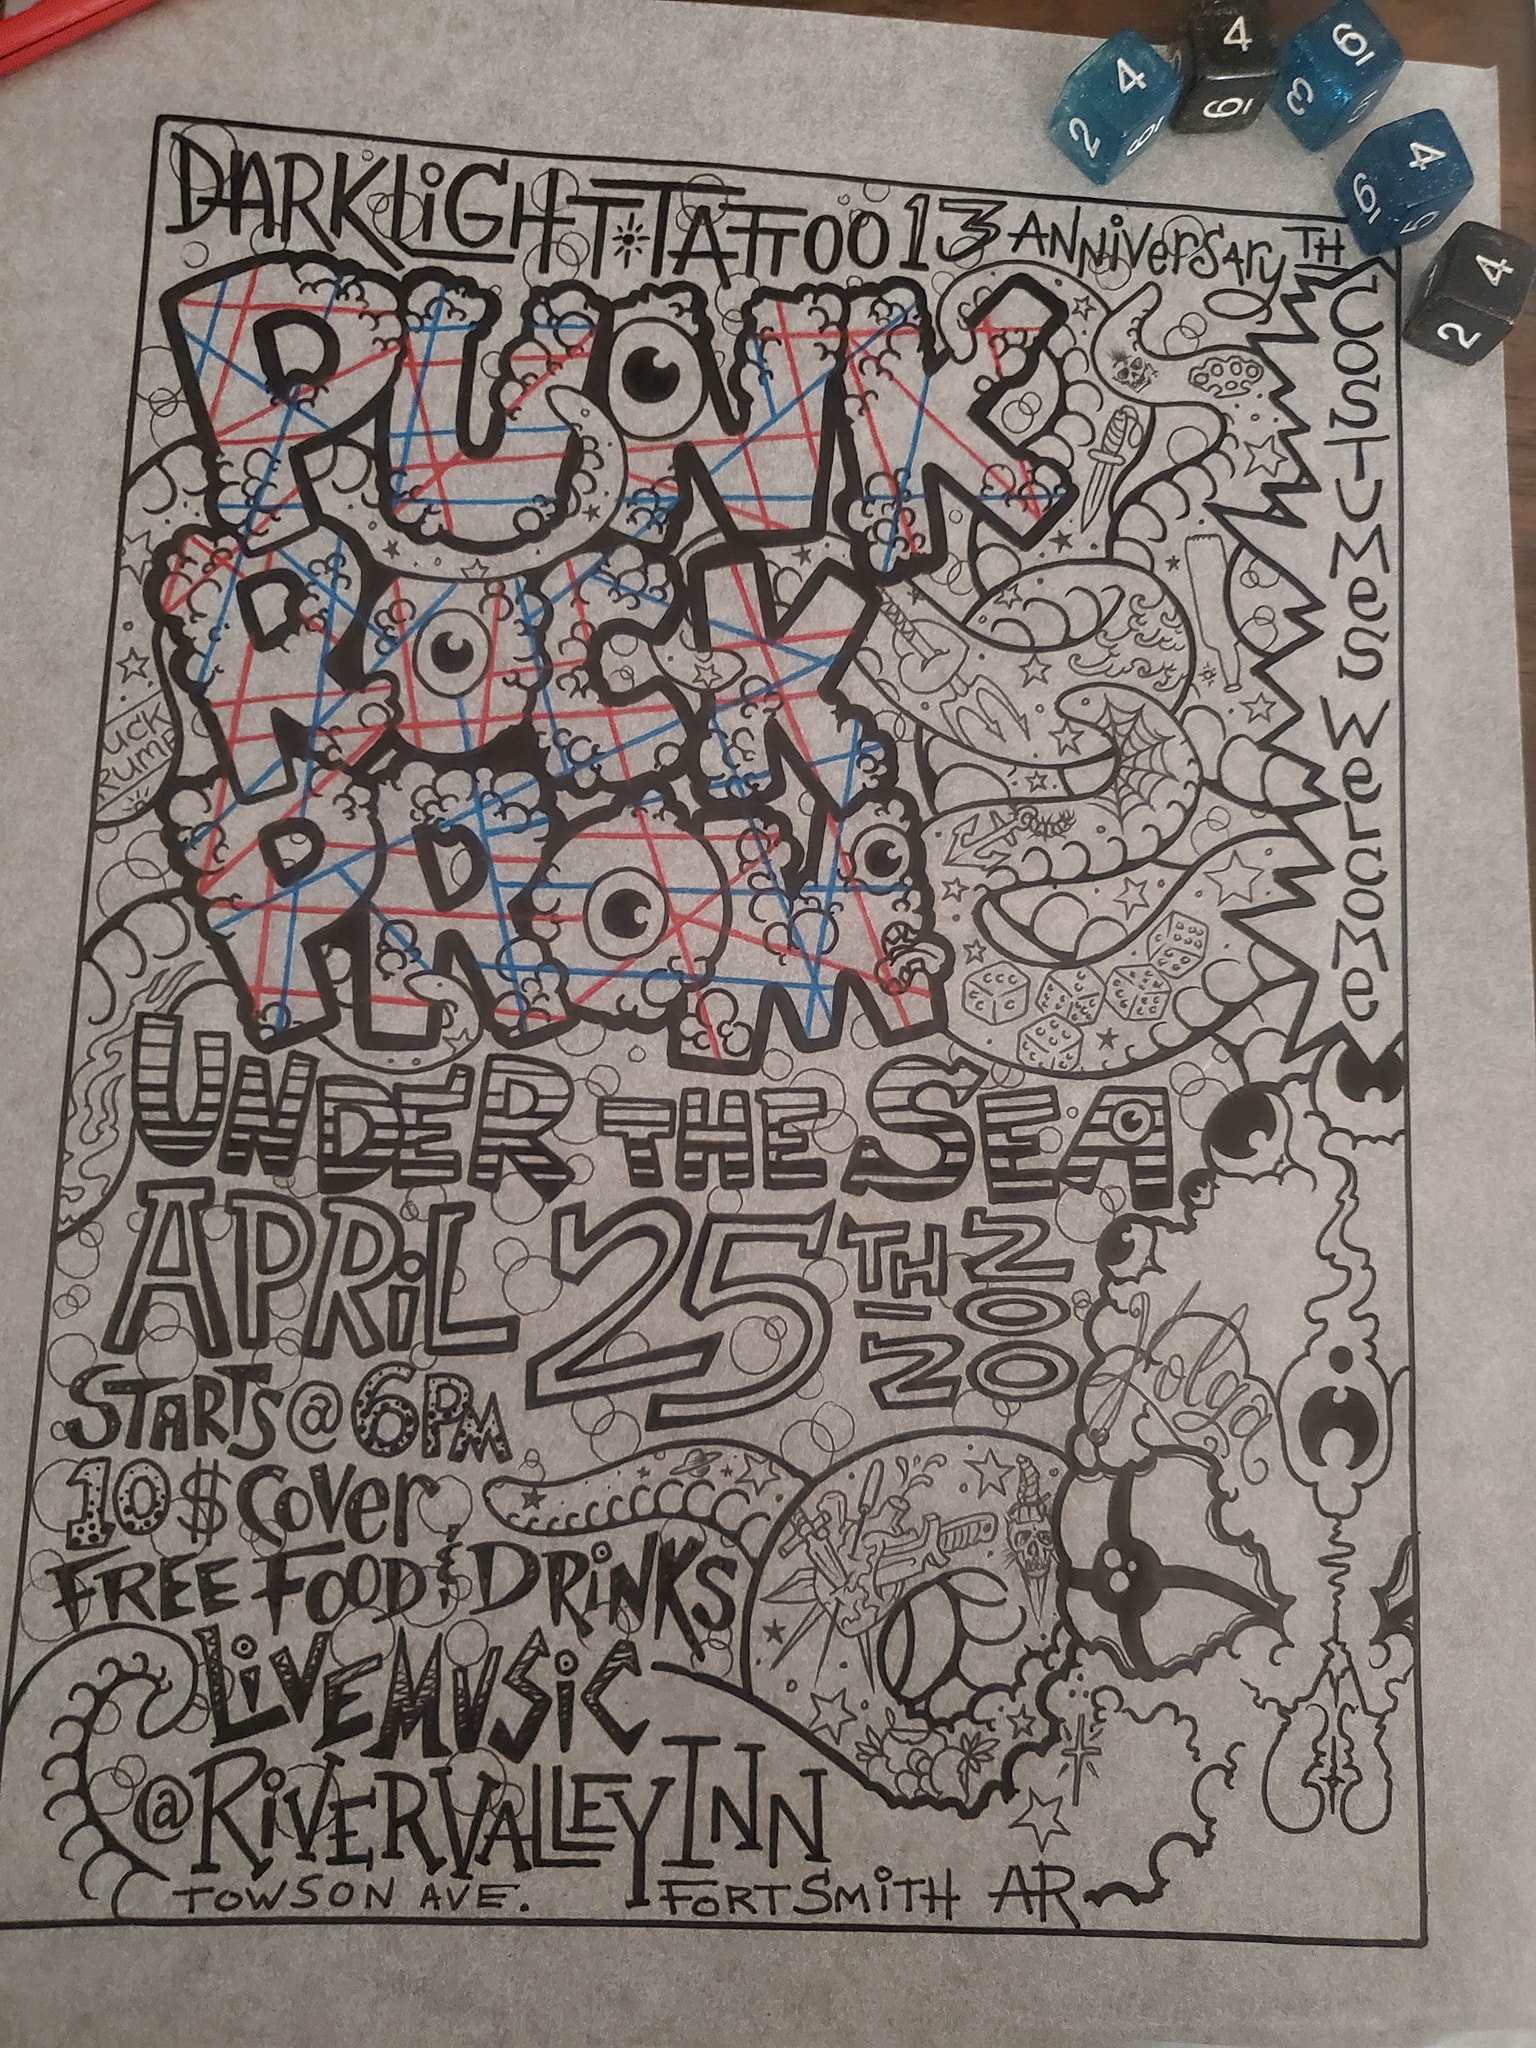 DARKLIGHT TATTOO 13TH ANNIVERSARY
PUNK
ROCK
PROM
UNDER THE SEA
APRIL 25TH 2020
STARTS @ 6PM
10$ COVER
FREE FOOD & DRINKS
LIVE MUSIC
@ RIVER VALLEY INN
TOWSON AVE. FORT SMITH AR
COSTUMES WELCOME
UCK
RUMP
Holga
4
2
6
4
6
6
3
4
6
5
4
2